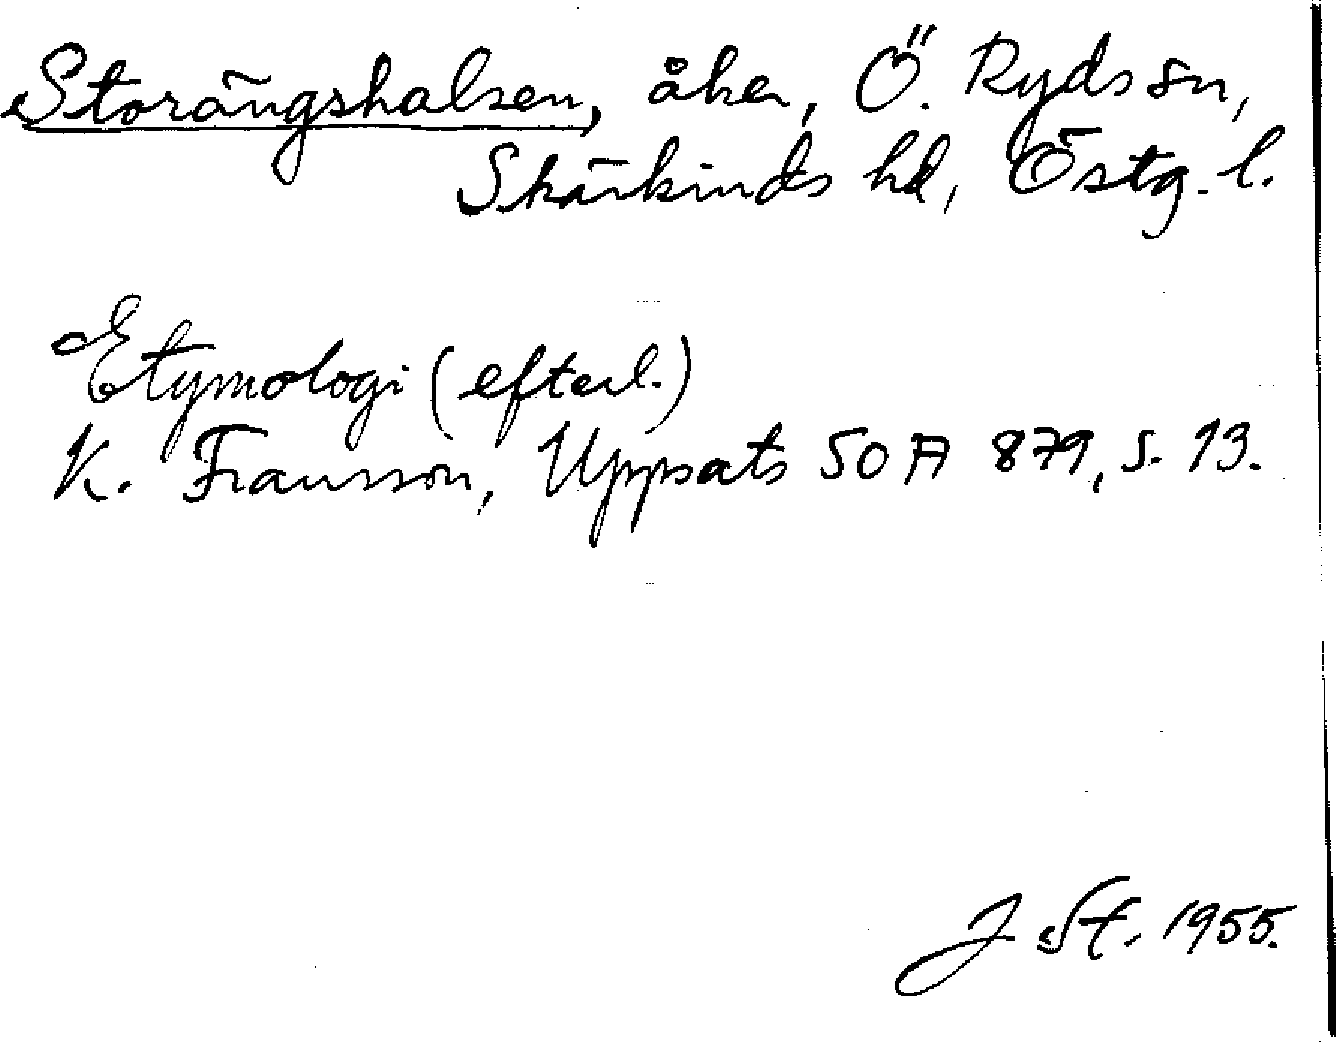 Storängshalsen, åker, Ö. Ryds sn,
Skärkinds hd, Östg. l.
Etymologi (efterl.)
K. Fransson, Uppsats SOA 879, s. 13.
J St. 1955.